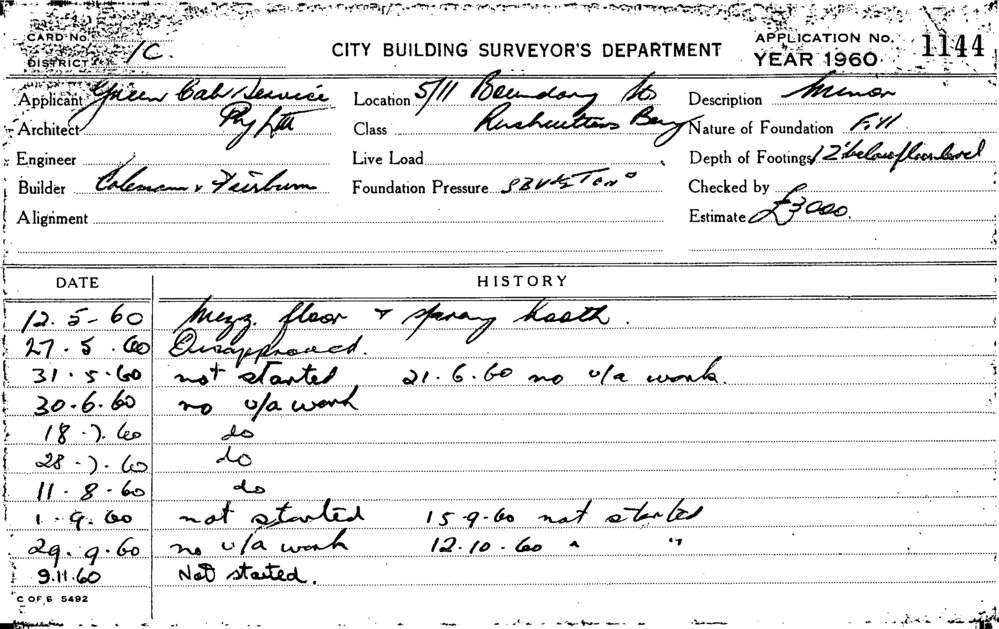 CARD No.
DISTRICT 1C.
CITY BUILDING SURVEYOR'S DEPARTMENT
APPLICATION No. 1144
YEAR 1960
Applicant Green Cab Service
Architect Pty Ltd
Engineer
Builder Coleman & Fairburn
Alignment
Location 5/11 Boundary St
Class Rushcutters Bay
Live Load
Foundation Pressure
Description Minor
Nature of Foundation Fill
Depth of Footings 12" below floor level
Checked by
Estimate £3000.
DATE HISTORY
12.5-60 Mezz. floor & spray booth.
27.5.60 Disapproved.
31.5.60 not started 21.6.60 no u/a work.
30.6.60 no u/a work
18.7.60 do
28.7.60 do
11.8.60 do
1.9.60 not started 15.9.60 not started
29.9.60 no u/a work 12.10.60 " "
9.11.60 Not started.
C OF S 5492